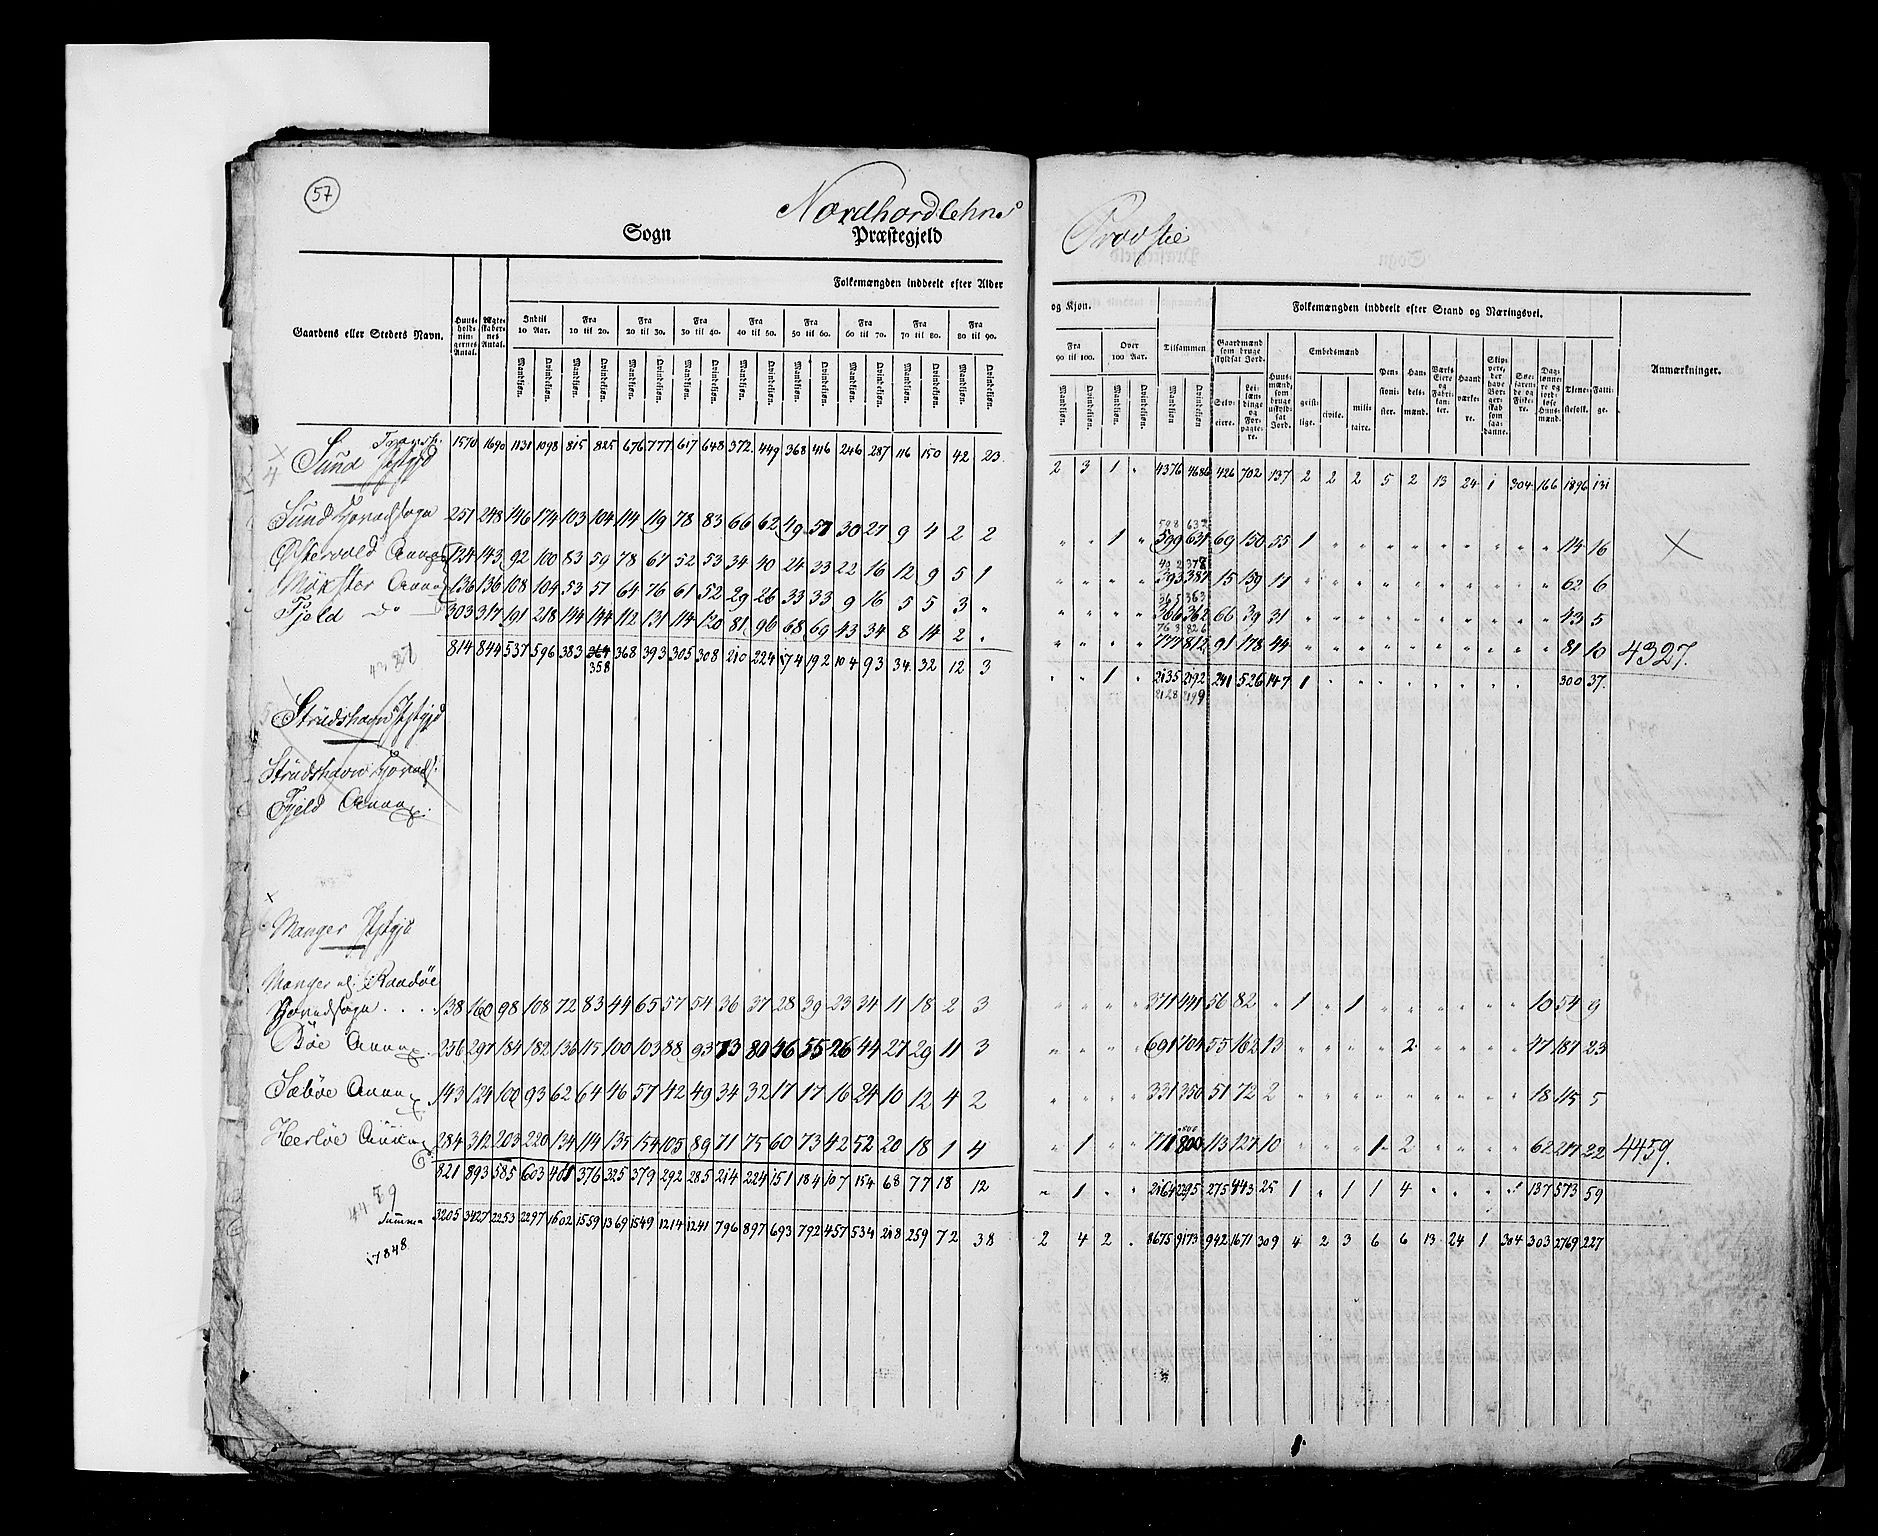 57
Nordhordlehns Provstie
Sogn Præstegjeld
Gaardens eller Steders Navn.
Huus-holdnin-gernes Antal.
Ægte-skaber-nes Antal.
Folkemængden inddeelt efter Alder og Kjøn.
Indtil 10 Aar. Fra 10 til 20. Fra 20 til 30. Fra 30 til 40. Fra 40 til 50. Fra 50 til 60. Fra 60 til 70. Fra 70 til 80. Fra 80 til 90. Fra 90 til 100. Over 100 Aar. Tilsammen
Mandkjøn. Qvindekjøn.
Folkemængden inddeelt efter Stand og Næringsvei.
Gaardmænd som bruge skyldsat Jord.
Selv-eiere.
Lei-læn-dinge og For-pagte-re.
Huus-mænd, som bruge uskyld-sat Jord.
Embedsmænd
geist-lige. civile. mili-taire.
Pen-sioni-ster.
Han-dels-mænd.
Værks Eiere og Fabri-kan-ter.
Haand værke-re.
Skip-pere, der have Bor-ger-skab som saa-danne.
Søe-farende og Fiske-re.
Dag-lønne-re og jord-løse Huus-mænd.
Tjene-stefolk.
Fatti-ge.
Anmærkninger.
Transp. 1570 1690 1131 1098 815 825 676 777 617 648 372 449 368 416 246 287 116 150 42 23 2 3 1 " 4376 4686 426 702 137 2 2 2 5 2 13 24 1 304 166 1896 131
4 Sund Pstgjd
598 632
Sund Hovedsogn 251 248 146 174 103 104 114 119 78 83 66 62 49 57 30 27 9 4 2 2 " " 1 " 599 631 69 150 55 1 " " " " " " " " " 114 16
402 378
Østervold Annex 124 143 92 100 83 59 78 67 52 53 34 40 24 33 22 16 12 9 5 1 " " " " 393 387 15 159 11 " " " " " " " " " " 62 6
365 363
Møxster Annex 136 136 108 104 53 57 64 76 61 52 29 26 33 33 9 16 5 5 3 " " " " " 366 362 66 39 31 " " " " " " " " " " 43 5
763 826
Fjeld do 303 317 191 218 144 144 112 131 114 120 81 96 68 69 43 34 8 14 2 " " " " " 777 812 91 178 44 " " " " " " " " " " 81 10 4327.
814 844 537 596 383 364 368 393 305 308 210 224 174 192 104 93 34 32 12 3 " " 1 " 2135 2192 241 526 147 1 " " " " " " " " " 300 37.
358
2128 2199
5 Strudshavn Pstgjd
Strudshavn Hoveds.
Fjeld Annex.
Manger Pstgjd
Manger el. Raadøe
Hovedsogn . . . 138 160 98 108 72 83 44 65 57 54 36 37 28 39 23 34 11 18 2 3 " " " " 371 441 56 82 " 1 " 1 " " " " " " 10 54 9
Bøe Annex 256 297 184 182 136 115 100 103 88 93 73 80 46 55 26 44 27 29 11 3 " " " " 691 704 55 162 13 " " " " 2 " " " " 47 187 23
Sæbøe Annex 143 124 100 93 62 64 46 57 42 49 34 32 17 17 16 24 10 12 4 2 " " " " 331 350 51 72 2 " " " " " " " " " 18 115 5
Herløe Annex 284 312 203 220 134 114 135 154 105 89 71 75 60 73 42 52 20 18 1 4 " 1 " " 771 800 113 127 10 " " " 1 2 " " " " 62 217 22 4459.
821 893 585 603 401 376 325 379 292 285 214 224 151 184 107 154 68 77 18 12 " 1 " " 2164 2295 275 443 25 1 " 1 1 4 " " " " 137 573 59
Summa 3205 3427 2253 2297 1602 1559 1369 1549 1214 1241 796 897 693 792 457 534 218 259 72 38 2 4 2 . 8675 9173 942 1671 309 4 2 3 6 6 13 24 1 304 303 2769 227
17848